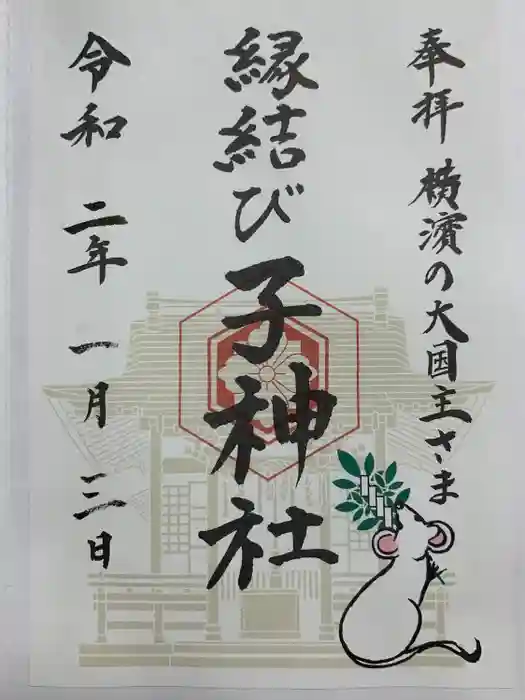 奉拝 横濱の大国主さま
縁結び子神社
令和 二年 一月 三日